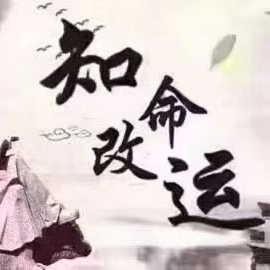 知命
改运